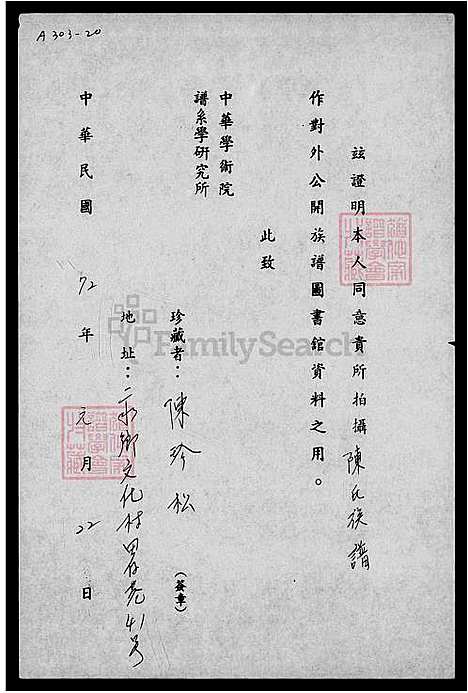 A303-20
茲證明本人同意貴所拍攝陳氏族譜
作對外公開族譜圖書館資料之用。
此致
中華學術院
譜系學研究所
珍藏者：陳珍松（簽章）
地址：二水鄉文化村 巷41号
中華民國72年元月22日
FamilySearch